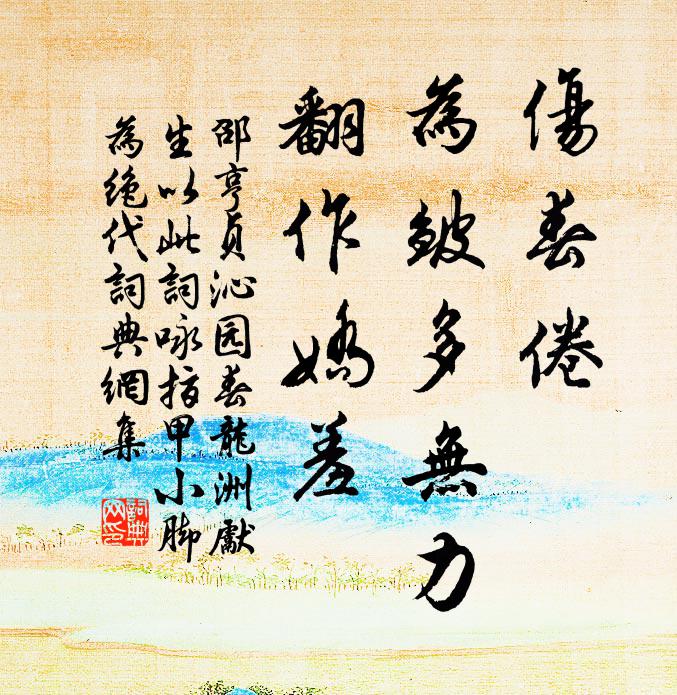 傷春倦
為皴多無力
翻作嬌羞
邵亨貞沁园春龍洲獻
生以此詞咏指甲小脚
為絶代詞典網集
詞典